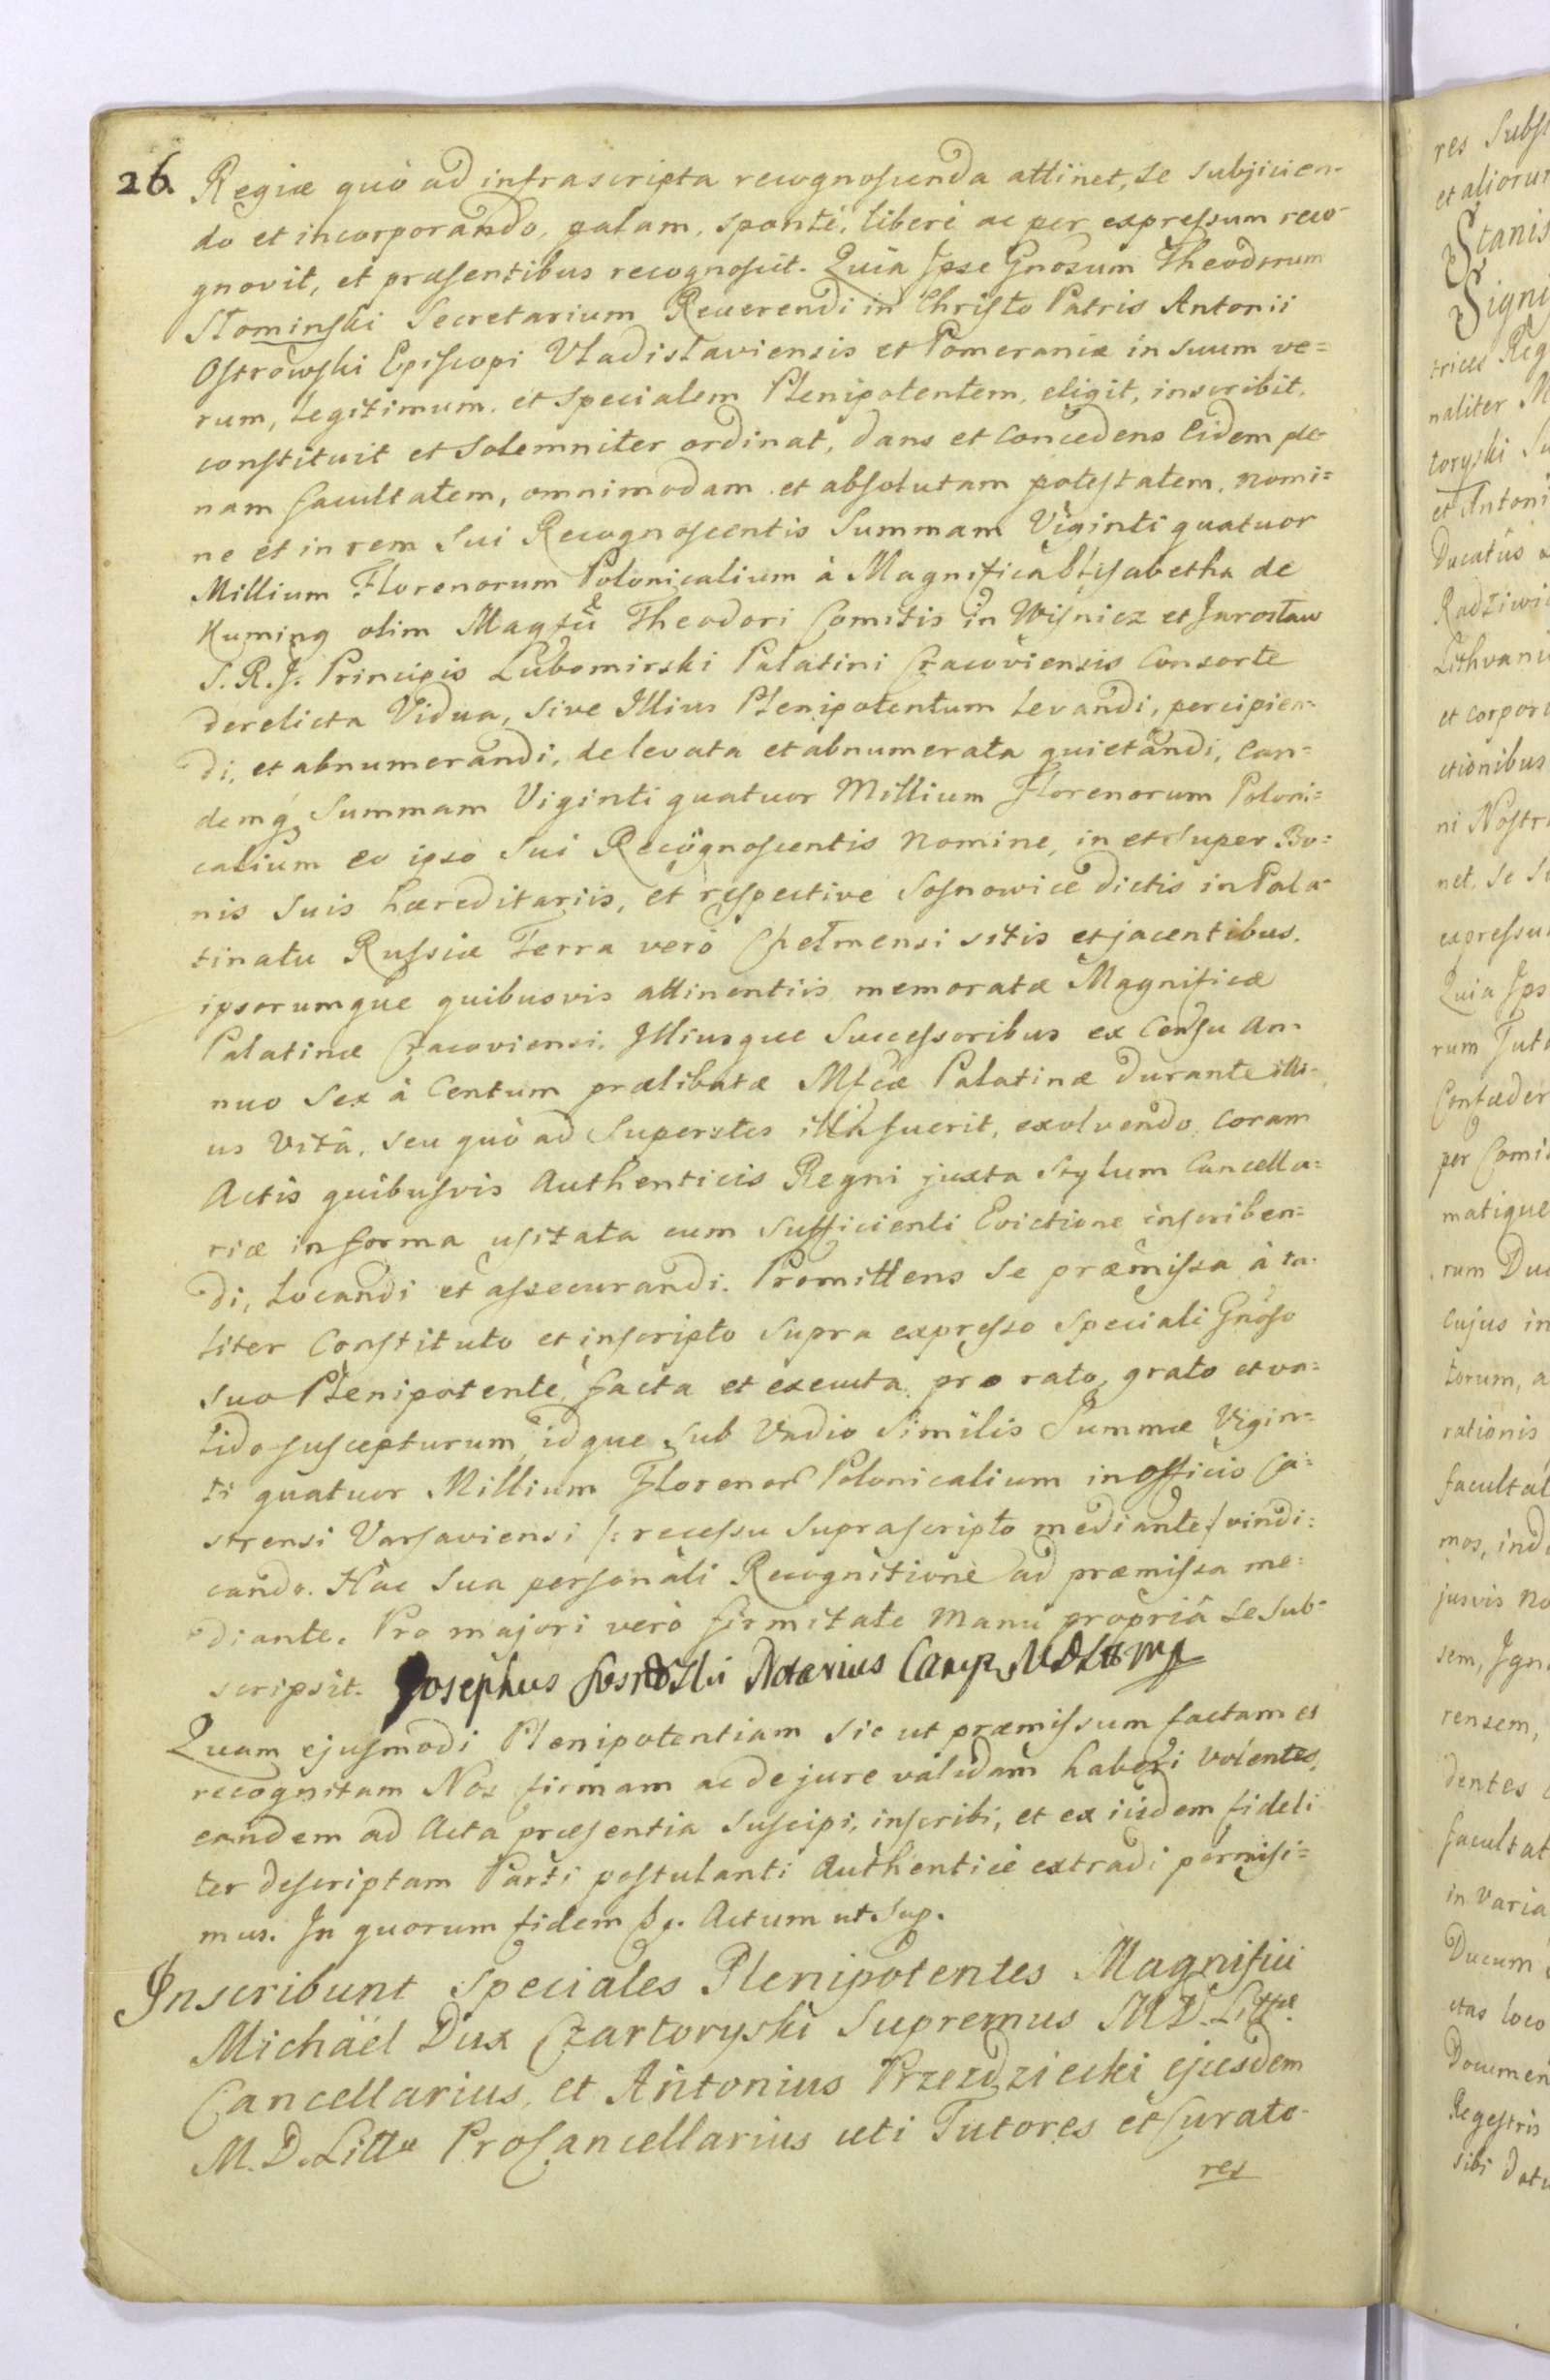 26. Regiæ quò ad infrascripta recognoscenda attinet, se subjicien-
do et incorporando, palam, spontè, liberè ac per expressum reco-
gnovit, et præsentibus recognoscit. Quia Ipse Gnosum Theodorum
Słominski Secretarium Reverendi in Christo Patris Antonii
Ostrowski Episcopi Vladislaviensis et Pomeraniæ in suum ve=
rum, legitimum, et specialem Plenipotentem, eligit, inscribit,
constituit et solemniter ordinat, dans et concedens Eidem ple-
nam facultatem, omnimodam et absolutam potestatem, nomi=
ne et in rem sui Recognoscentis Summam Viginti quatuor
Millium Florenorum Polonicalium à Magnifica Elisabetha de
Kuming olim Magfci Theodori Comitis in Wisnicz et Jarosław
S. R. J. Principis Lubomirski Palatini Cracoviensis Consorte
derelicta Vidua, sive Illius Plenipotentum levandi, percipien-
di, et abnumerandi, de levata et abnumerata quietandi, ean=
demq Summam Viginti quatuor Millium Florenorum Poloni=
calium eo ipso sui Recognoscentis Nomine, in et super Bo=
nis suis hæreditariis, et respective Sosnowice dictis in Pala-
tinatu Russiæ Terra verò Chełmensi sitis et jacentibus,
ipsorumque quibusvis attinentiis memoratæ Magnificæ
Palatinæ Cracoviensi, Illiusque Successoribus ex Censu An-
nuo Sex à Centum prælibatæ Mfcæ Palatinæ durante illi-
us vitâ, seu quò ad Superstes illa fuerit, exolvendo, coram
Actis quibusvis Authenticis Regni juxta Stylum Cancella=
riæ in forma usitata cum sufficienti Evictione inscriben=
di, locandi et assecurandi. Promittens se præmissa à ta-
liter Constituto et inscripto supra expresso speciali Gnoso
suo Plenipotente, facta et executa, pro rato, grato et va=
lido suscepturum, idque sub Vadio similis Summæ Vigin=
ti quatuor Millium Florenor Polonicalium in officio Ca=
strensi Varsaviensi /: recessu suprascripto mediante :/ vindi=
cando. Hâc sua personali Recognitione ad præmissa me=
diante. Pro majori verò firmitate manu propriâ se sub-
scripsit. Josephus Sosnowski Notarius Camp. MDL mp
Quam ejusmodi Plenipotentiam sic ut præmissum factam et
recognitam Nos firmam ac de jure validam haberi volentes,
eandem ad Acta præsentia suscipi, inscribi, et ex iisdem fideli
ter descriptam Parti postulanti Authenticè extradi permisi=
mus. In quorum fidem &c. Actum ut sup.
Inscribunt speciales Plenipotentes Magnifici
Michäel Dux Czartoryski Supremus M.D. Littæ
Cancellarius, et Antonius Przezdziecki ejusdem
M. D. Littæ ProCancellarius uti Tutores et Curato-
res
res Subs
et aliorum
Stanis
Signi
trices Reg
naliter M
toryski Su
et Antoni
Ducatûs
Radziwi
Lithvani
et corpor
ctionibus
ni Nostri
net, se S
expressu
Quia Ips
rum Tuto
Confæder
per Comi
matique
rum Duc
cujus in
torum, a
rationis
facultat
mos, ind
jusvis no
sem, Ign
rensem,
dentes
facultat
in varia
Ducum
ctas loco
Documen
Regestris
sibi dat